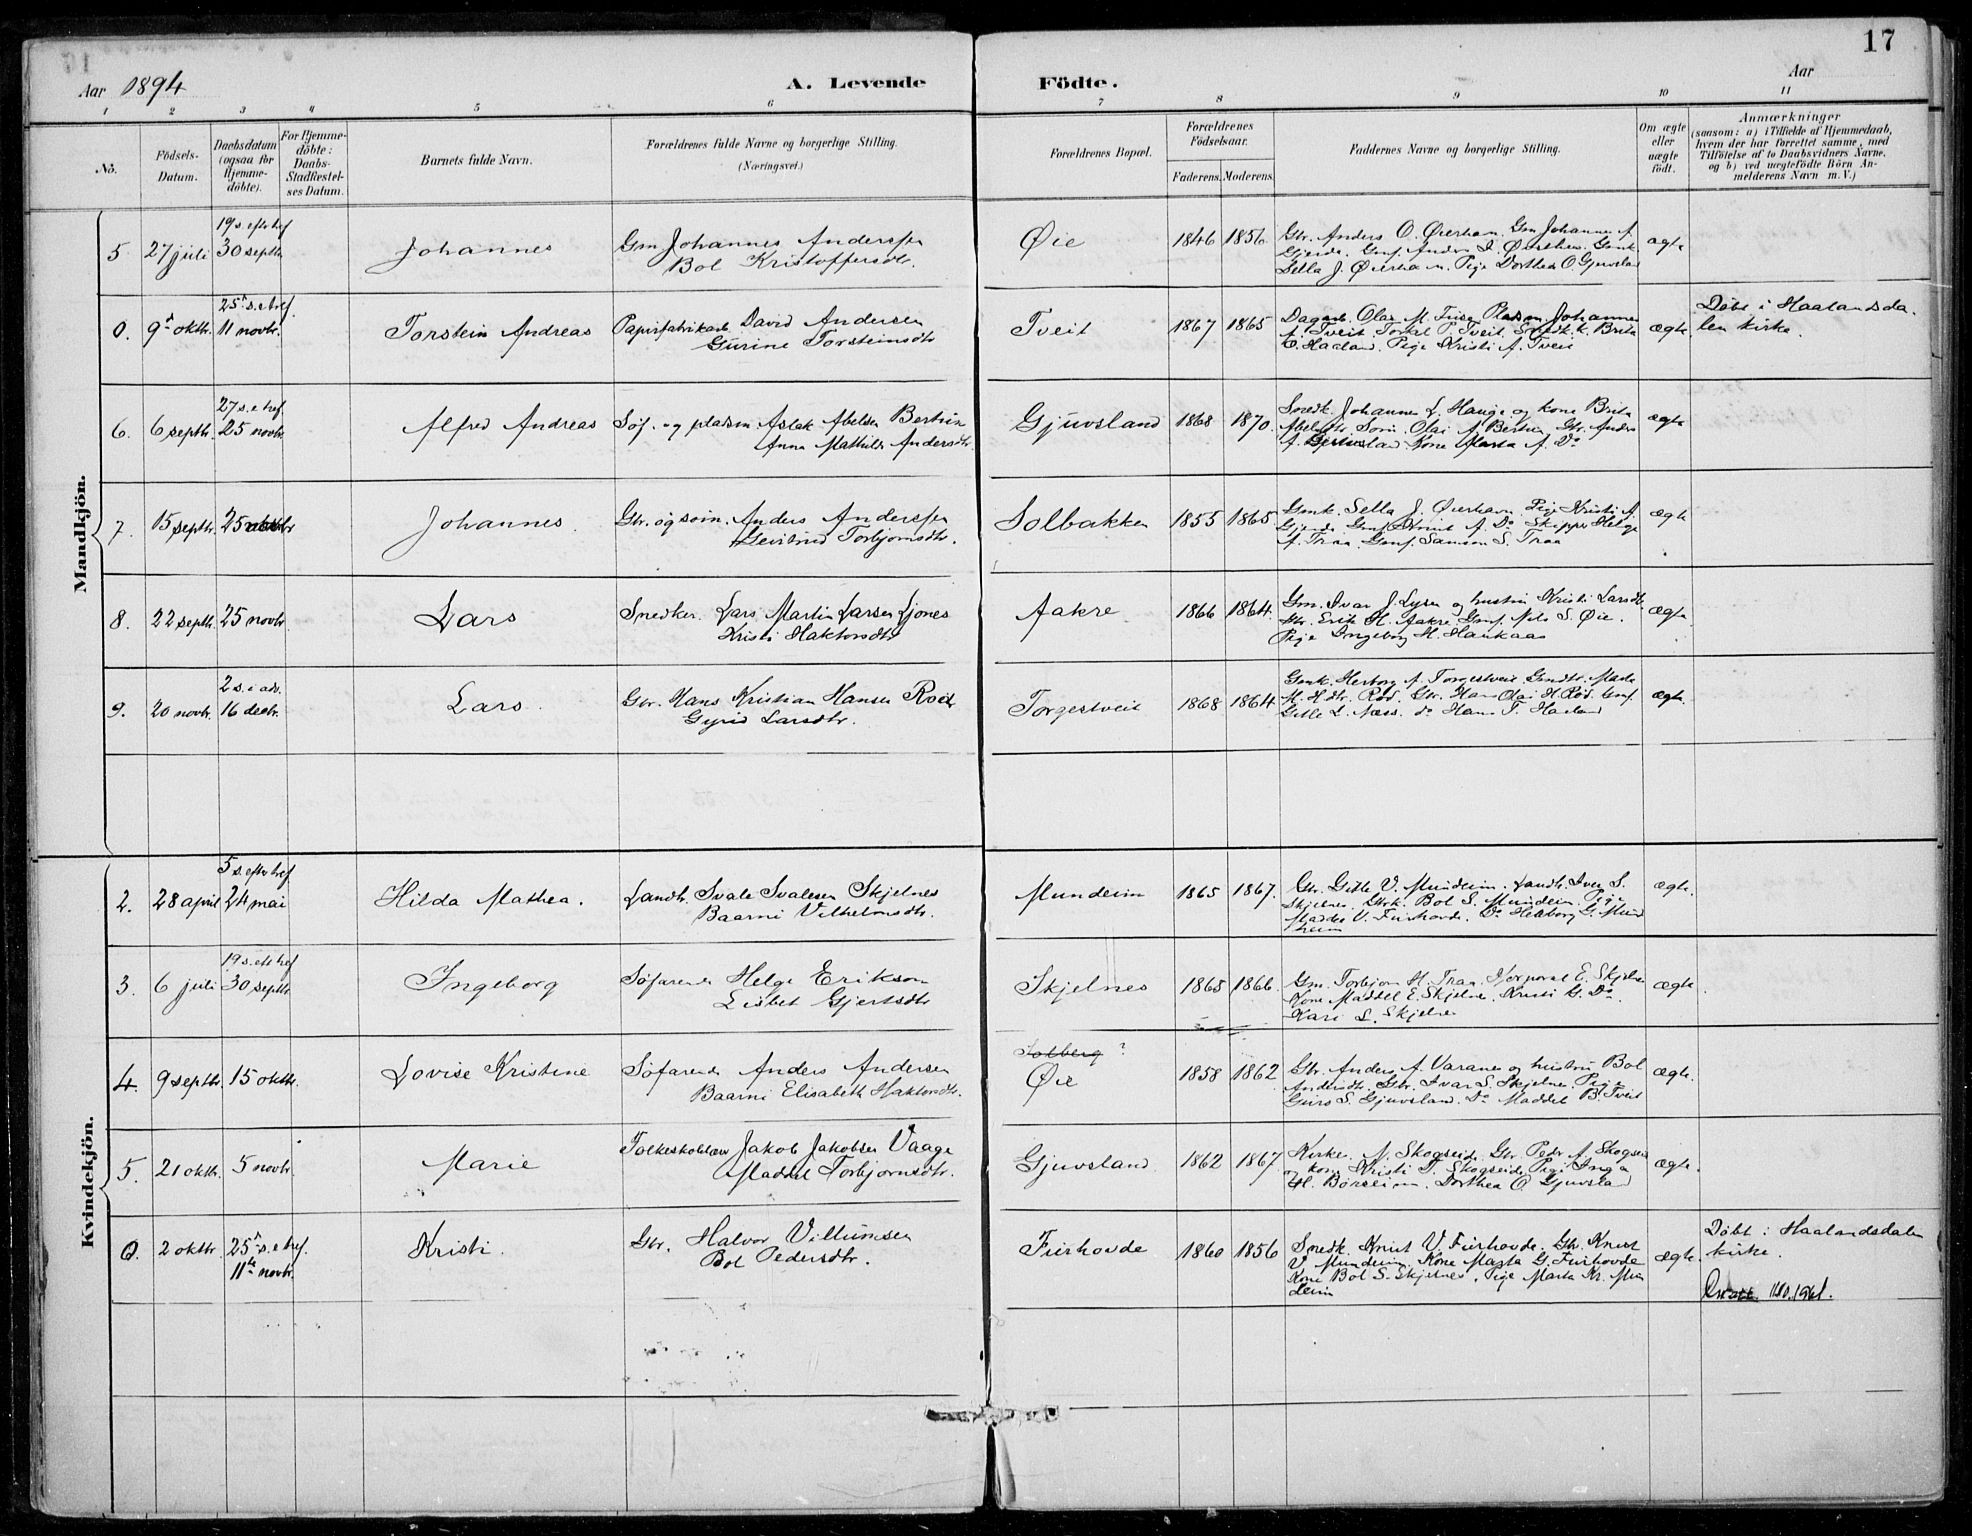 17
Aar 1894
A. Levende
Födte.
Aar
1 2 3 4 5 6 7 8 9 10 11
No.
Födsels-
Datum.
Daabsdatum
(ogsaa for
Hjemme-
döbte).
For Hjemme-
döbte:
Daabs-
Stadfæstel-
ses Datum.
Barnets fulde Navn.
Forældrenes fulde Navne og borgerlige Stilling.
(Næringsvei.)
Forældrenes Bopæl.
Forældrenes
Födselsaar.
Faderens. Moderens.
Faddernes Navne og borgerlige Stilling.
Om ægte
eller
uægte
födt.
Anmærkninger
(saasom: a) i Tilfælde af Hjemmedaab,
hvem der har forrettet samme, med
Tilföielse af to Daabsvidners Navne,
og b) ved uægtefödte Börn An-
melderens Navn m. V.)
Mandkjön.
19 s. efter tref
5 27 juli 30 septbr. Johannes Gm Johannes Andersen
Bol Kristoffersdtr.
Øie 1846 1856
Gbr. Anders O. Øierhavn. Gm Johannes A.
Gjerde. Gmf. Anders J. Øierhavn. Gmk
Sella J. Øierhavn. Pige Dorthea O. Gjuvsland
ægte
25de s. e. tref.
0. 9de oktbr. 11 novbr. Torstein Andreas Papirfabrikarb. David Andersen
Gurine Torsteinsdtr
Tveit 1867 1865
A. Tveit. Torkel P. Tveit. Snedk. k. Brita
O. Haaland. Pige Kristi A. Tveit
ægte.
Döbt i Haalandsda-
len kirke.
27 s. e. tref.
6. 6 septbr. 25 novbr. Alfred Andreas Söf. og pladsm. Aslak Abelsen Bertuin
Anna Mathilde Andersdtr.
Gjuvsland 1868 1870.
Snedk. Johannes L. Hauge og kone Brita
A. Gjuvsland. Kone Marta A. Do
ægte
7. 15 septbr. 25 novbr Johannes. Gbr. og söm. Anders Andersen
Torbjornsdtr.
Solbakken 1855 1865
Gmk. Sella J. Øierhavn. Pige Kristi A.
A. Traa. Gmf. Samson S. Traa
ægte
8. 22 septbr. 25 novbr. Lars Snedker Lars Martin Larsen Ljones
Kristi Haktorsdtr
Aakre 1866 1864.
Gm. Ivar J. Lysen og hustru Kristi Larsdtr
Gbr. Erik H. Aakre. Gmf. Nils S. Øie.
Pige Ingeborg H. Haukaas
ægte
2 s. i adv.
9. 20 novbr. 16 decbr. Lars. Gbr. Hans Kristian Hansen Röd
Gyrid Larsdtr.
Torgestveit 1868 1864
Gmk. Herborg A. Torgestveit. Gmdtr. Mada
M. H.dtr. Röd. Gbr. Hans Olai H. Röd. Gmf.
Gitle L. Næss. do Hans T. Haaland
ægte.
Kvindekjön.
5 s. efter tref
2. 28 april 24 mai Hilda Mathea. Landh. Svale Svalesen Skjelnes
Baarni Vilhelmsdtr.
Mundeim 1865 1867.
Gbr. Gitle V. Mundeim. Landh. Iver S.
Skjelnes. Gbrk. Bol S. Mundeim. Pige
Maddel V. Furhovde. Do Herborg G. Mund
heim
ægte.
19 s. eft. tref
3. 6 juli 30 septbr Ingeborg Söfarende Helge Erikson
Lisbet Gjertsdtr
Skjelnes 1865 1866.
Gm. Torbjørn H. Traa. Korporal E. Skjelnes
Kone Maddel E. Skjelnes. Kristi G. Do.
Kari L. Skjelnes
ægte.
4. 9 septbr. 15 oktbr. Lovise Kristine Söfarende Anders Andersen
Baarni Elisabeth Haktorsdtr.
Solberg ?
Øie 1858 1862
Gbr. Anders A. Varanes og hustru Bol
Andersdtr. Gbr. Ivar S. Skjelnes. Pige
Guro S. Gjuvsland. Do Maddel B. Tveit
ægte.
5. 21 oktbr. 5 novbr. Marie Folkeskolelærer Jakob Jakobsen Vaage
Maddel Torbjornsdtr.
Gjuvsland 1862 1867
Kirkes. A. Skogseide. Gbr. Peder A. Skogseid
og kone Kristi T. Skogseide. Pige Inga
H. Börseim. Dorthea O. Gjuvsland
ægte.
0. 2 oktbr. 25de s. e. tref.
11te novbr. Kristi. Gbr. Halvor Villumsen
Bol Pedersdtr.
Furhovde 1860 1856
Snedk. Knut V. Furhovde. Gbr. Knut
V. Mundeim. Kone Marta G. Furhovde
Kone Bol S. Skjelnes. Pige Marta Kr. Mun
deim
ægte.
Döbt i Haalandsdalen
kirke.